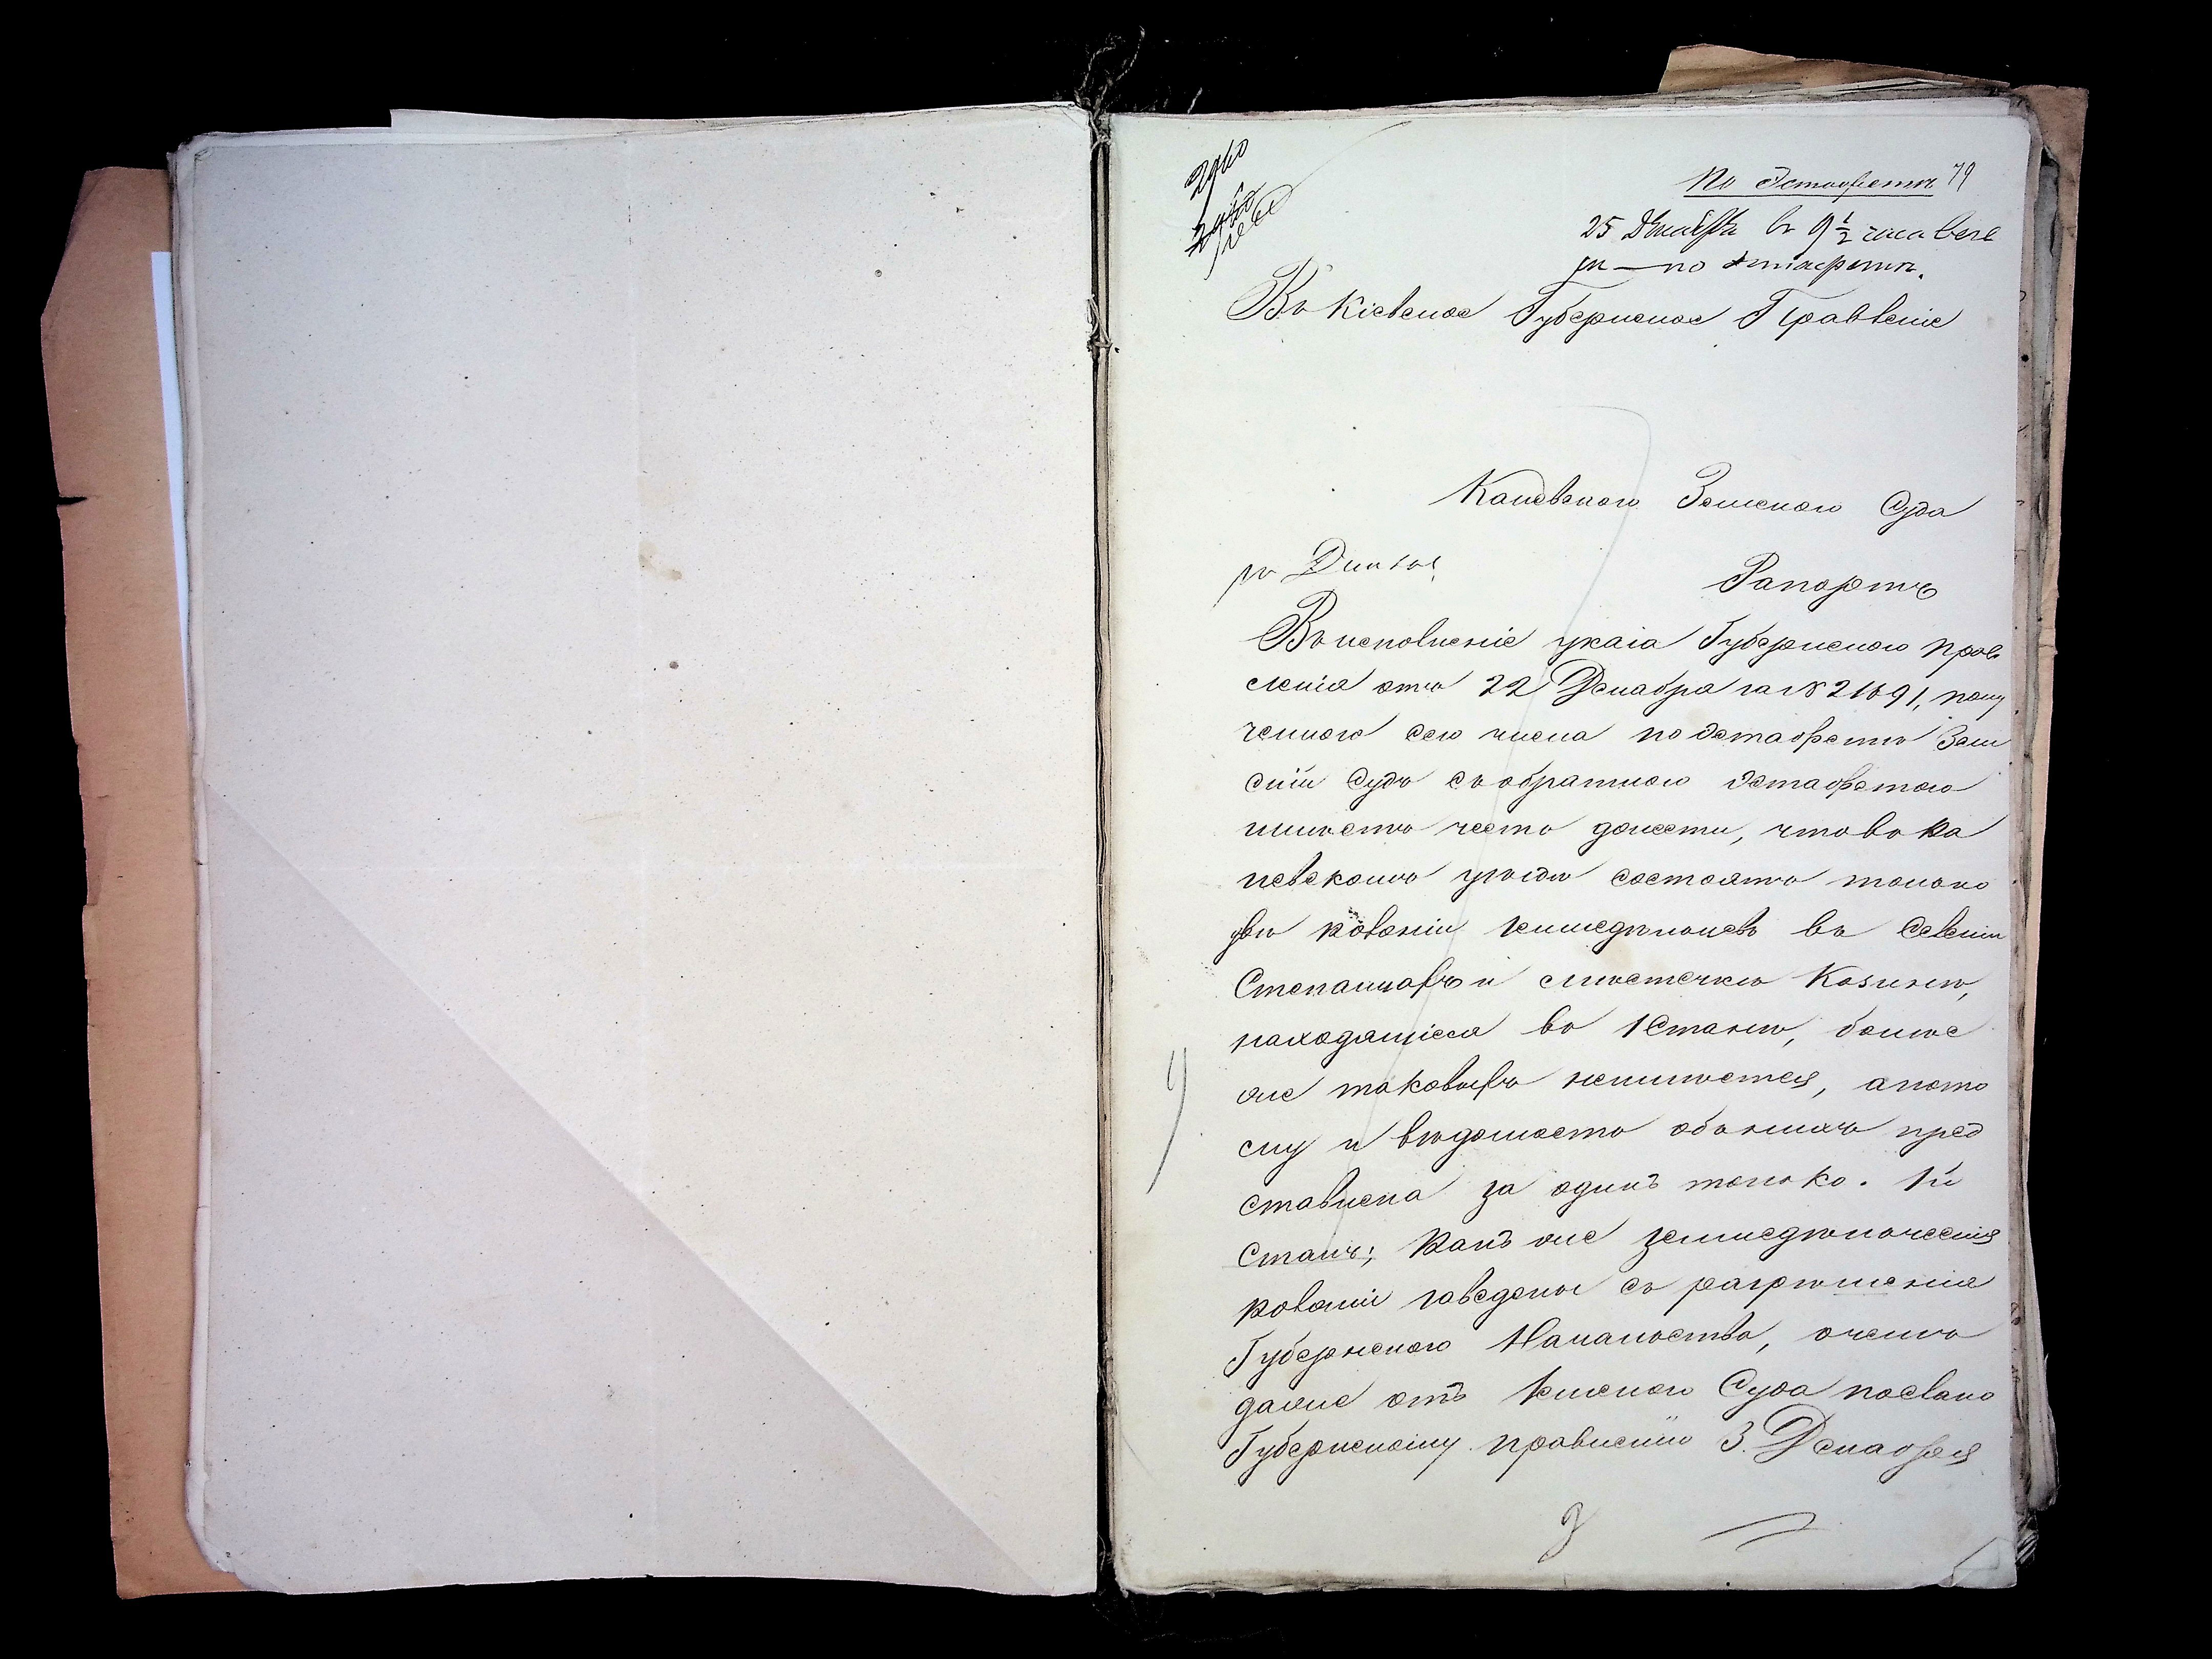 По Эстафетѣ 79
25 Декабря въ 9 1/2 часа вече
ра — по эстафетѣ.
Въ Кіевское Губернское Правленіе
Каневского Земского Суда
Рапортъ
Во исполненіе указа Губернского прав
ленія отъ 22 Декабря за № 21891, полу
ченного сего числа по эстафетѣ Зем
скій Судъ съ обратною эстафетою
имѣетъ честь донести, что въ Ка
невскомъ уѣздѣ состоятъ только
двѣ колоніи земледѣльцевъ въ Селеніи
Степанцахъ и мѣстечкѣ Козинѣ,
находящіеся въ 1 Станѣ, болѣе
же таковыхъ неимѣется, а пото
му и вѣдомость обь нихъ пред
ставлена за одинъ только 1й
Станъ; какъ же земледѣльческія
колоніи заведены съ разрѣшенія
Губернского Начальства, о чемъ
даже отъ Земского Суда послано
Губернскому правленію 3. Декабря